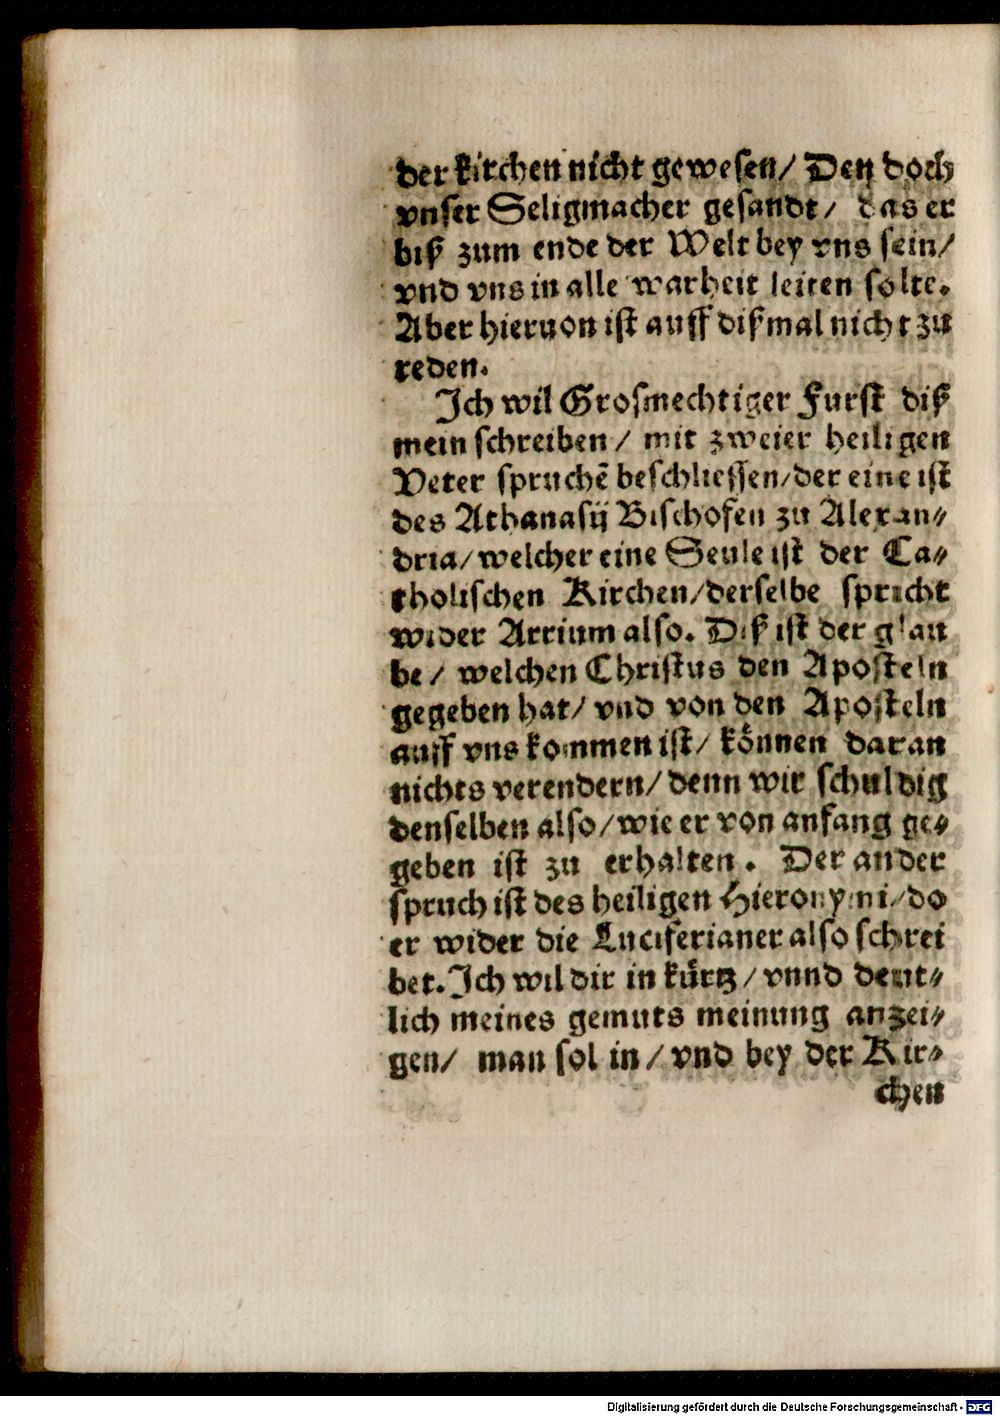 der kirchen nicht gewesen/ Den doch
vnser Seligmacher gesandt/ das er
biß zum ende der Welt bey vns sein/
vnd vns in alle warheit leiten solte.
Aber hieruon ist auff dißmal nicht zu
reden.
Ich wil Grosmechtiger Furst diß
mein schreiben/ mit zweier heiligen
Veter spruchē beschliessen/der eine ist
des Athanasij Bischofen zu Alexan⸗
dria/welcher eine Seule ist der Ca⸗
tholischen Kirchen/derselbe spricht
wider Arrium also. Diß ist der glau
be/ welchen Christus den Aposteln
gegeben hat/ vnd von den Aposteln
auff vns kommen ist/ können daran
nichts verendern/denn wir schuldig
denselben also/wie er von anfang ge⸗
geben ist zu erhalten. Der ander
spruch ist des heiligen Hieronymi/do
er wider die Luciferianer also schrei
bet. Ich wil dir in kürtz/vnnd deut⸗
lich meines gemuts meinung anzei⸗
gen/ man sol in/vnd bey der Kir⸗
chen
Digitalisierung gefördert durch die Deutsche Forschungsgemeinschaft - DFG